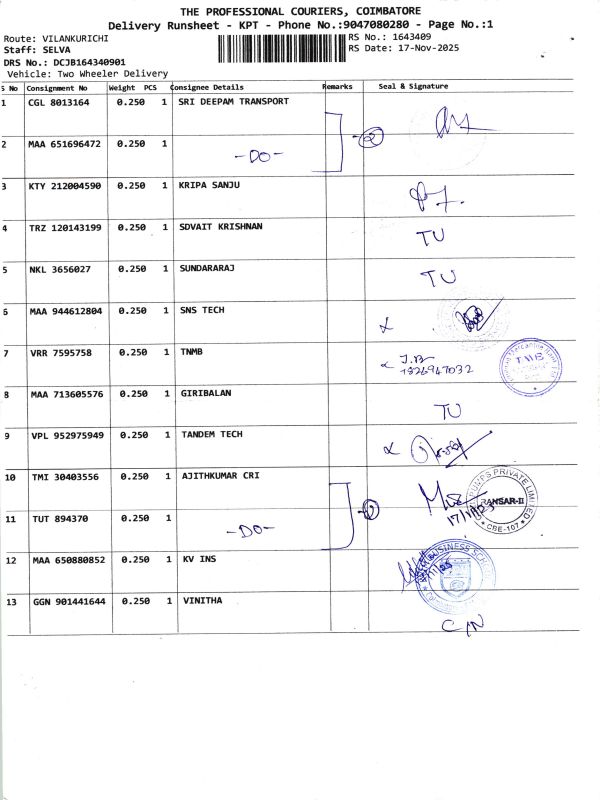 THE PROFESSIONAL COURIERS, COIMBATORE
Delivery Runsheet - KPT - Phone No.:9047080280 - Page No.:1
Route: VILANKURICHI RS No.: 1643409
Staff: SELVA RS Date: 17-Nov-2025
DRS No.: DCJB164340901
Vehicle: Two Wheeler Delivery
S No Consignment No Weight PCS Consignee Details Remarks Seal & Signature
1 CGL 8013164 0.250 1 SRI DEEPAM TRANSPORT
2 MAA 651696472 0.250 1 -DO- 2
3 KTY 212004590 0.250 1 KRIPA SANJU
4 TRZ 120143199 0.250 1 SDVAIT KRISHNAN TU
5 NKL 3656027 0.250 1 SUNDARARAJ TU
6 MAA 944612804 0.250 1 SNS TECH
7 VRR 7595758 0.250 1 TNMB J.B TMB
8 MAA 713605576 0.250 1 GIRIBALAN TU
9 VPL 952975949 0.250 1 TANDEM TECH
10 TMI 30403556 0.250 1 AJITHKUMAR CRI PUMPS PRIVATE LIMITED RANSAR-II CBE-107
11 TUT 894370 0.250 1 -DO-
12 MAA 650880852 0.250 1 KV INS BUSINESS SCHOOL
13 GGN 901441644 0.250 1 VINITHA
C/N